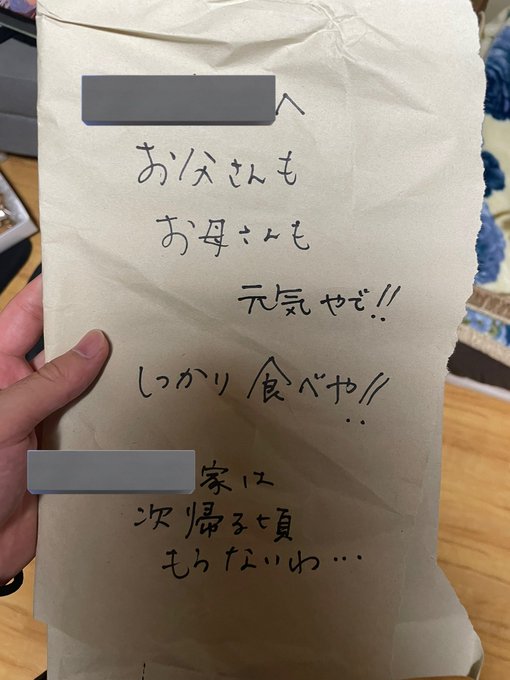 へ
お父さんも
お母さんも
元気やで!!
しっかり食べや!!
家は
次帰る頃
もうないわ…